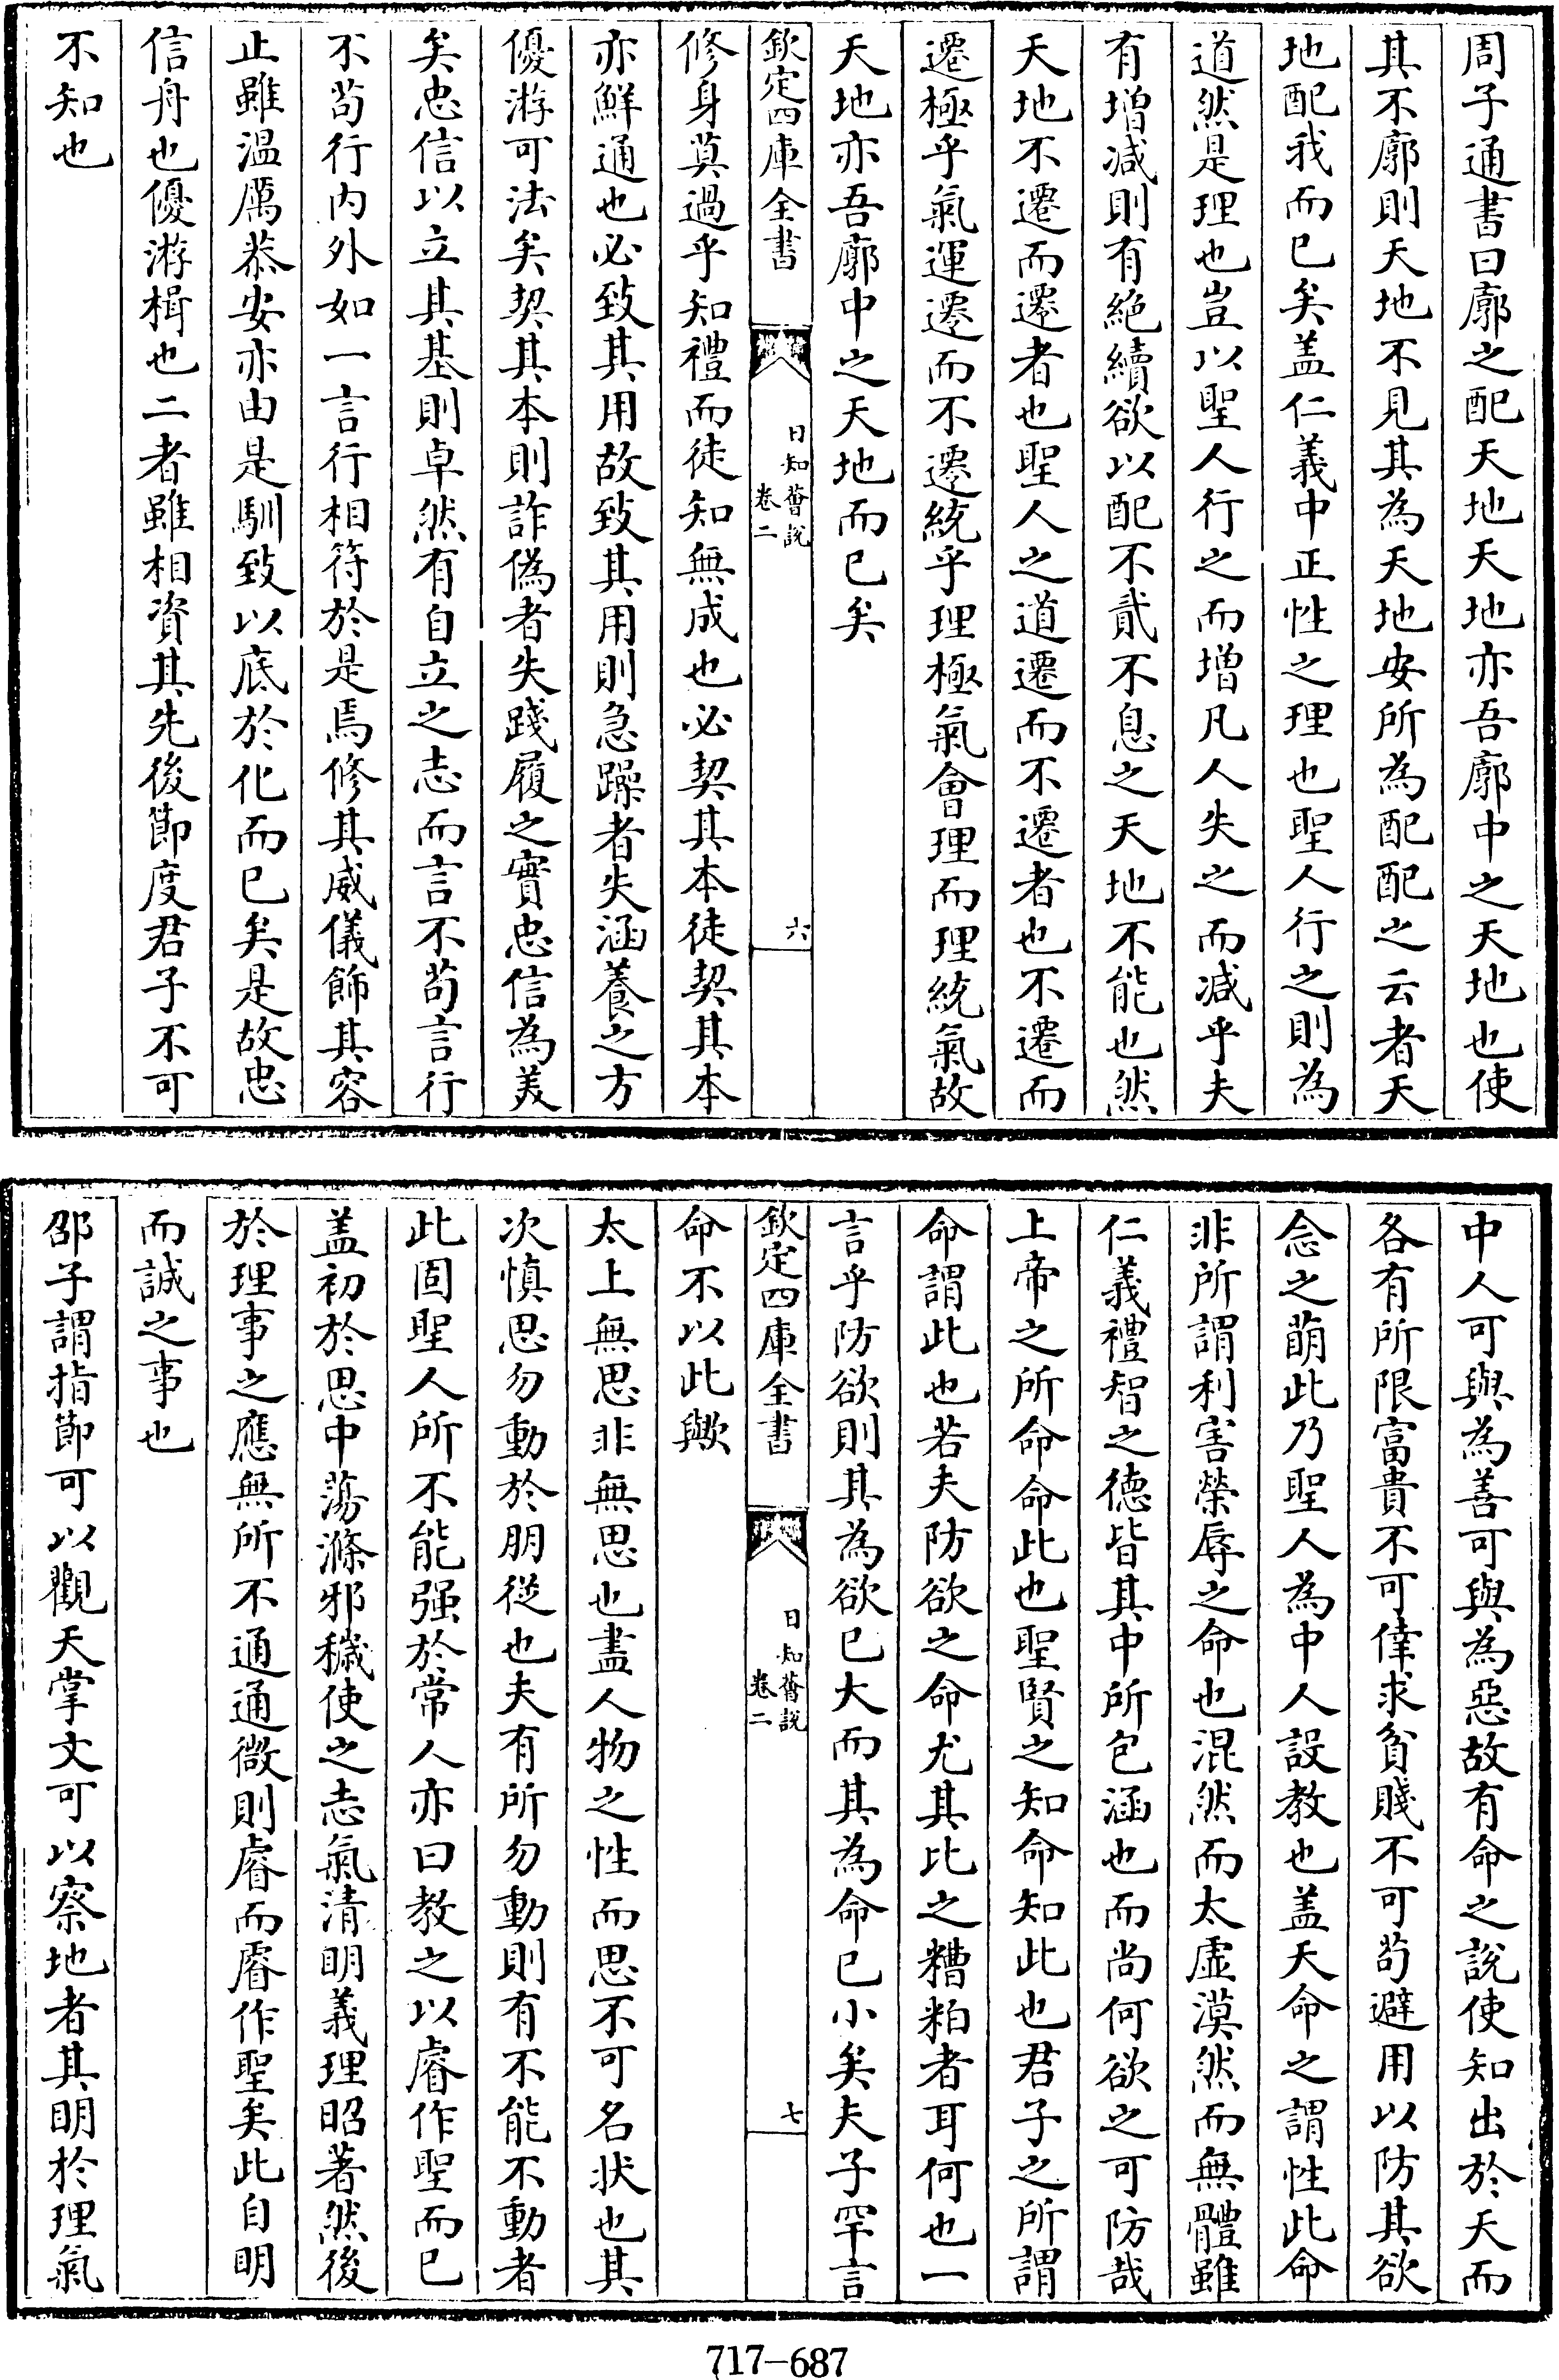 周子通書曰廓之配天地天地亦吾廓中之天地也使
其不廓則天地不見其為天地安所為配配之云者天
地配我而已矣盖仁義中正性之理也聖人行之則為
道然是理也豈以聖人行之而增凡人失之而減乎夫
有增减則有絶續欲以配不貳不息之天地不能也然
天地不遷而遷者也聖人之道遷而不遷者也不遷而
遷極乎氣運遷而不遷統乎理極氣會理而理統氣故
天地亦吾廓中之天地而已矣
欽定四庫全書
日知薈説
卷二
六
修身莫過乎知禮而徒知無成也必契其本徒契其本
亦鮮通也必致其用故致其用則急躁者失涵養之方
優游可法矣契其本則詐偽者失踐履之實忠信為美
矣忠信以立其基則卓然有自立之志而言不苟言行
不苟行内外如一言行相符於是焉修其威儀飾其容
止雖温厲恭安亦由是馴致以底於化而已矣是故忠
信舟也優游楫也二者雖相資其先後節度君子不可
不知也
中人可與為善可與為惡故有命之說使知出於天而
各有所限富貴不可倖求貧賤不可苟避用以防其欲
念之萌此乃聖人為中人設教也盖天命之謂性此命
非所謂利害榮辱之命也混然而太虛漠然而無體雖
仁義禮智之德皆其中所包涵也而尚何欲之可防哉
上帝之所命命此也聖賢之知命知此也君子之所謂
命謂此也若夫防欲之命尤其比之糟粕者耳何也一
言乎防欲則其為欲已大而其為命已小矣夫子罕言
欽定四庫全書
日知薈説
卷二
七
命不以此歟
太上無思非無思也盡人物之性而思不可名状也其
次慎思勿動於朋從也夫有所勿動則有不能不動者
此固聖人所不能强於常人亦曰教之以睿作聖而已
盖初於思中蕩滌邪穢使之志氣清明義理昭著然後
於理事之應無所不通通微則睿而睿作聖矣此自明
而誠之事也
邵子謂指節可以觀天掌文可以察地者其明於理氣
717-687